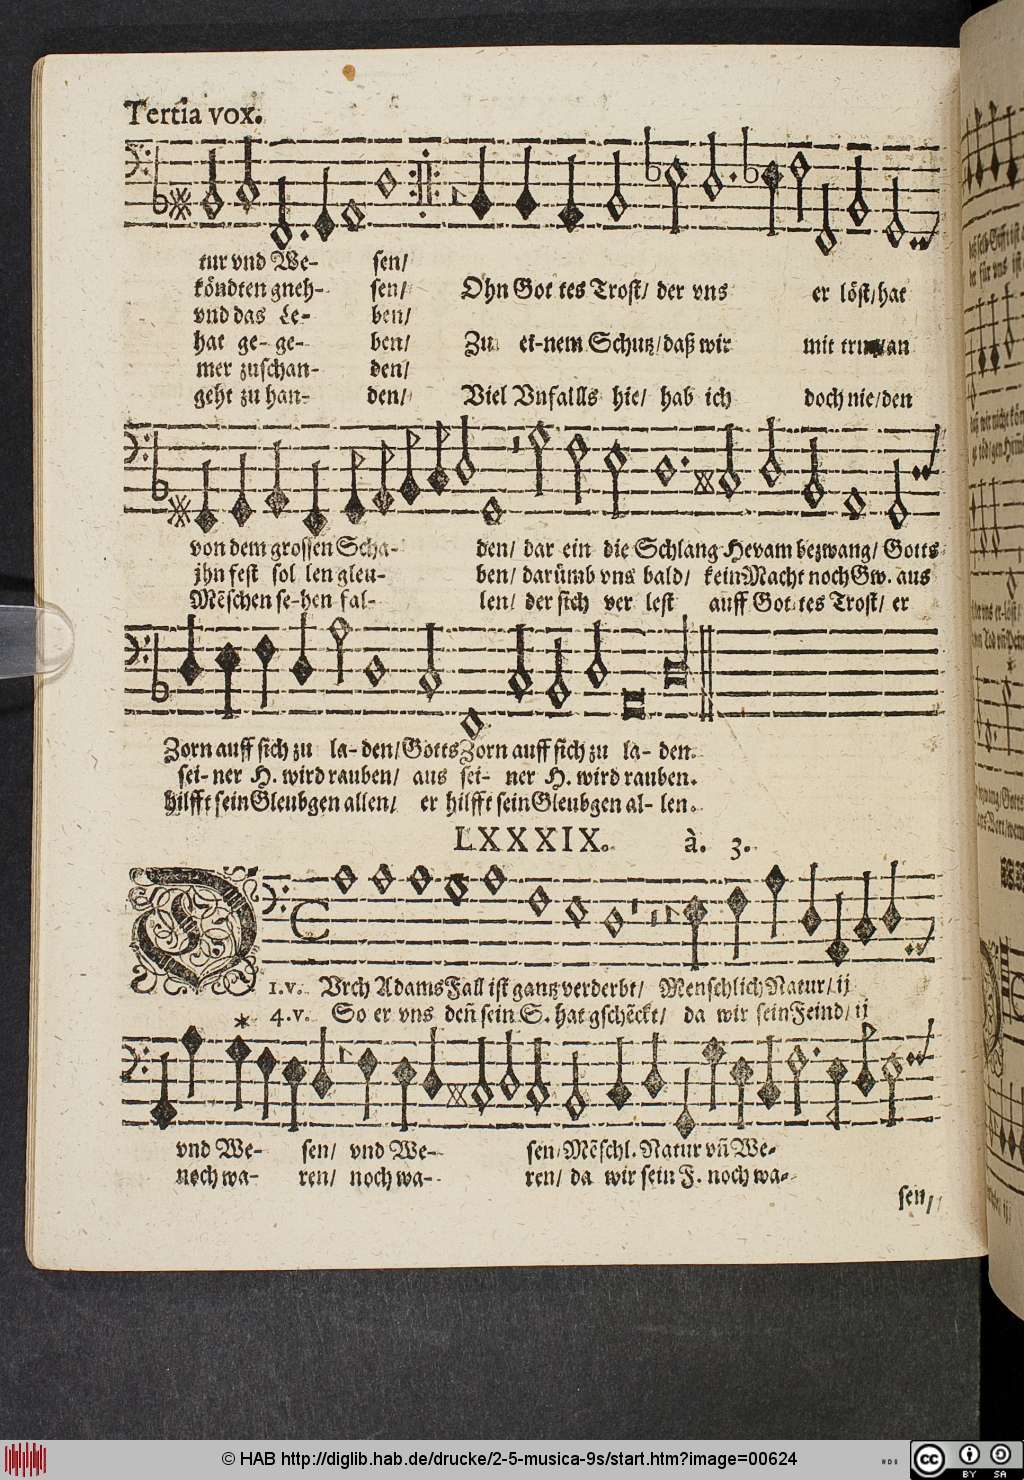 Tertia vox.
tur vnd We- sen/
köndten gneh- sen/ Ohn Got tes Trost/ der vns er löst/hat
vnd das Le- ben/
hat ge- ge- ben/ Zu ei-nem Schutz/daß wir mit trutz/an
mer zuschan- den/
geht zu han- den/ Viel Vnfallls hie/ hab ich doch nie/den
von dem grossen Scha- den/ dar ein die Schlang Hevam bezwang/ Gotts
jhn fest sol len gleu- ben/ darümb vns bald/ kein Macht noch Gw. aus
Mẽschen se-hen fal- len/ der sich ver lest auff Got tes Trost/ er
Zorn auff sich zu la- den/Gotts Zorn auff sich zu la- den.
sei- ner H. wird rauben/ aus sei- ner H. wird rauben.
hilfft sein Gleubgen allen/ er hilfft sein Gleubgen al- len.
LXXXIX. à. 3.
D
1.v. Vrch Adams Fall ist gantz verderbt/ Menschlich Natur/ ij
4.v. So er vns deñ sein S. hat gschẽckt/ da wir sein Feind/ ij
vnd We- sen/ vnd We- sen/Mẽschl. Natur vñ We-
noch wa- ren/ noch wa- ren/ da wir sein F. noch wa-
sen/
© HAB http://diglib.hab.de/drucke/2-5-musica-9s/start.htm?image=00624
cc BY SA